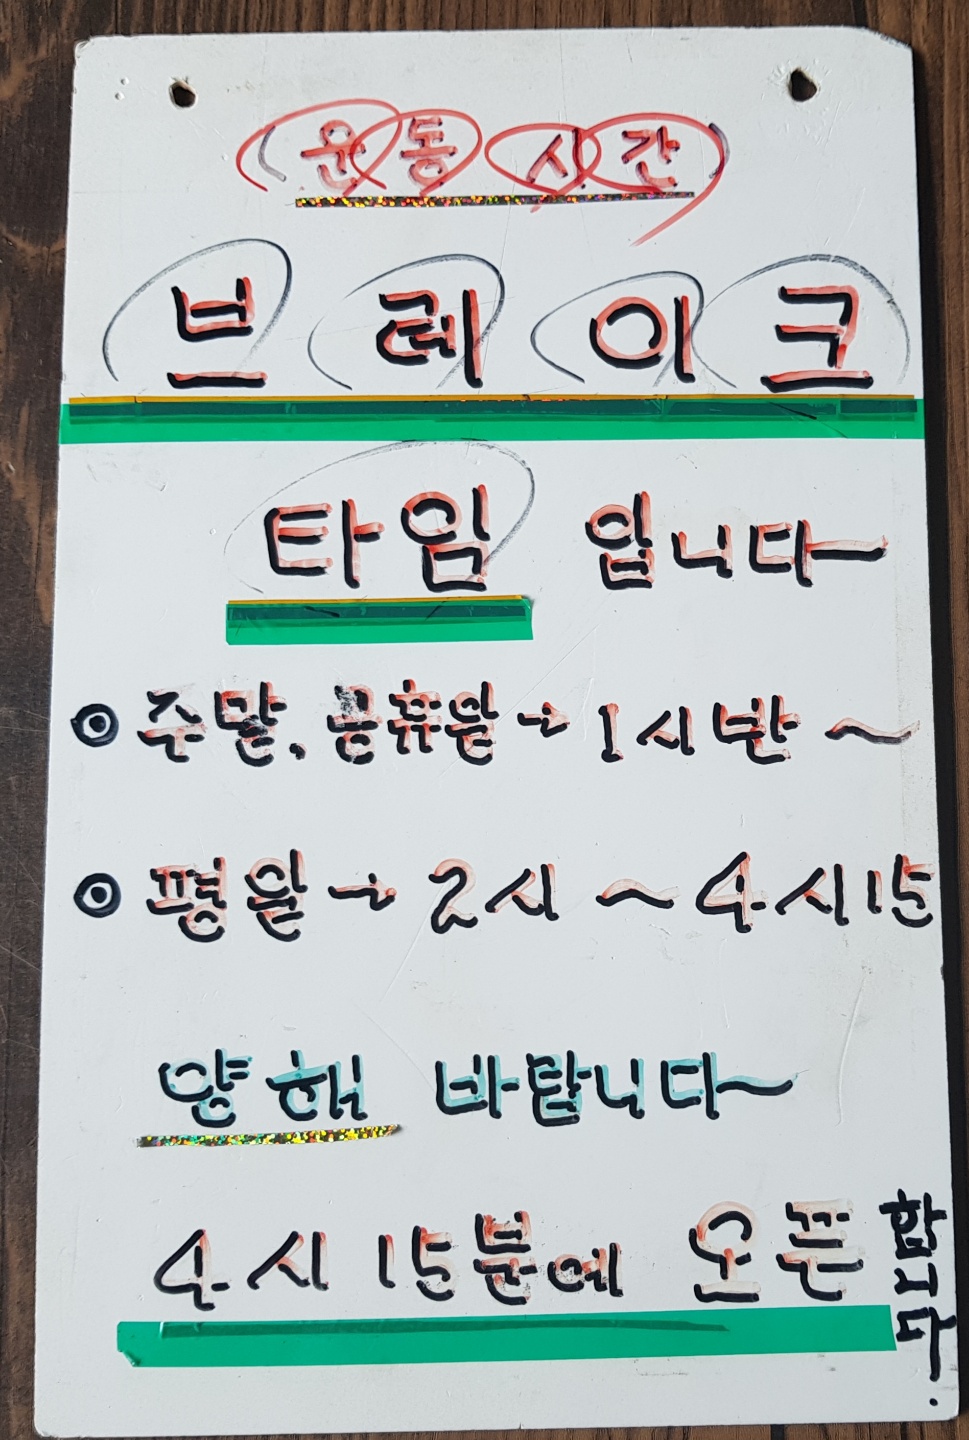 (운동시간)
브레이크
타임 입니다~
⊙ 주말, 공휴일 → 1시 반 ~
⊙ 평일 → 2시 ~ 4시 15
양해 바랍니다~
4시 15분에 오픈 합니다.